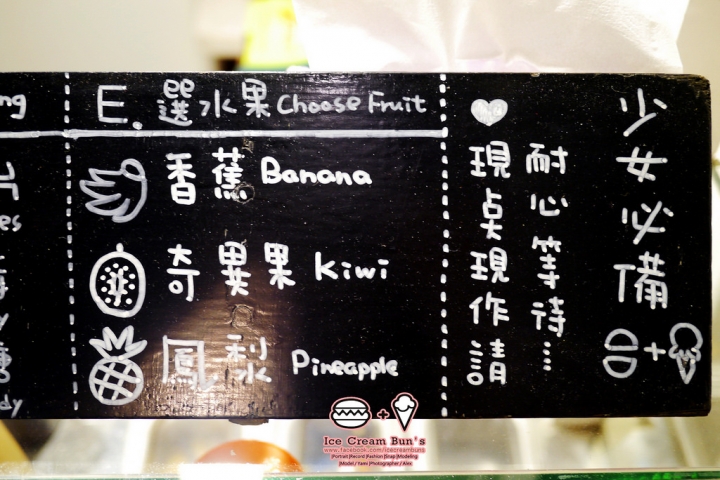 E. 選水果 Choose Fruit
香蕉 Banana
奇異果 Kiwi
鳳梨 Pineapple
少女必備
+
現奌現作請
耐心等待...
+
Ice Cream Bun's
www.facebook.com/icecreambuns
|Portrait |Record |Fashion |Snap |Modeling
|Model / Yami |Photographer / Alex